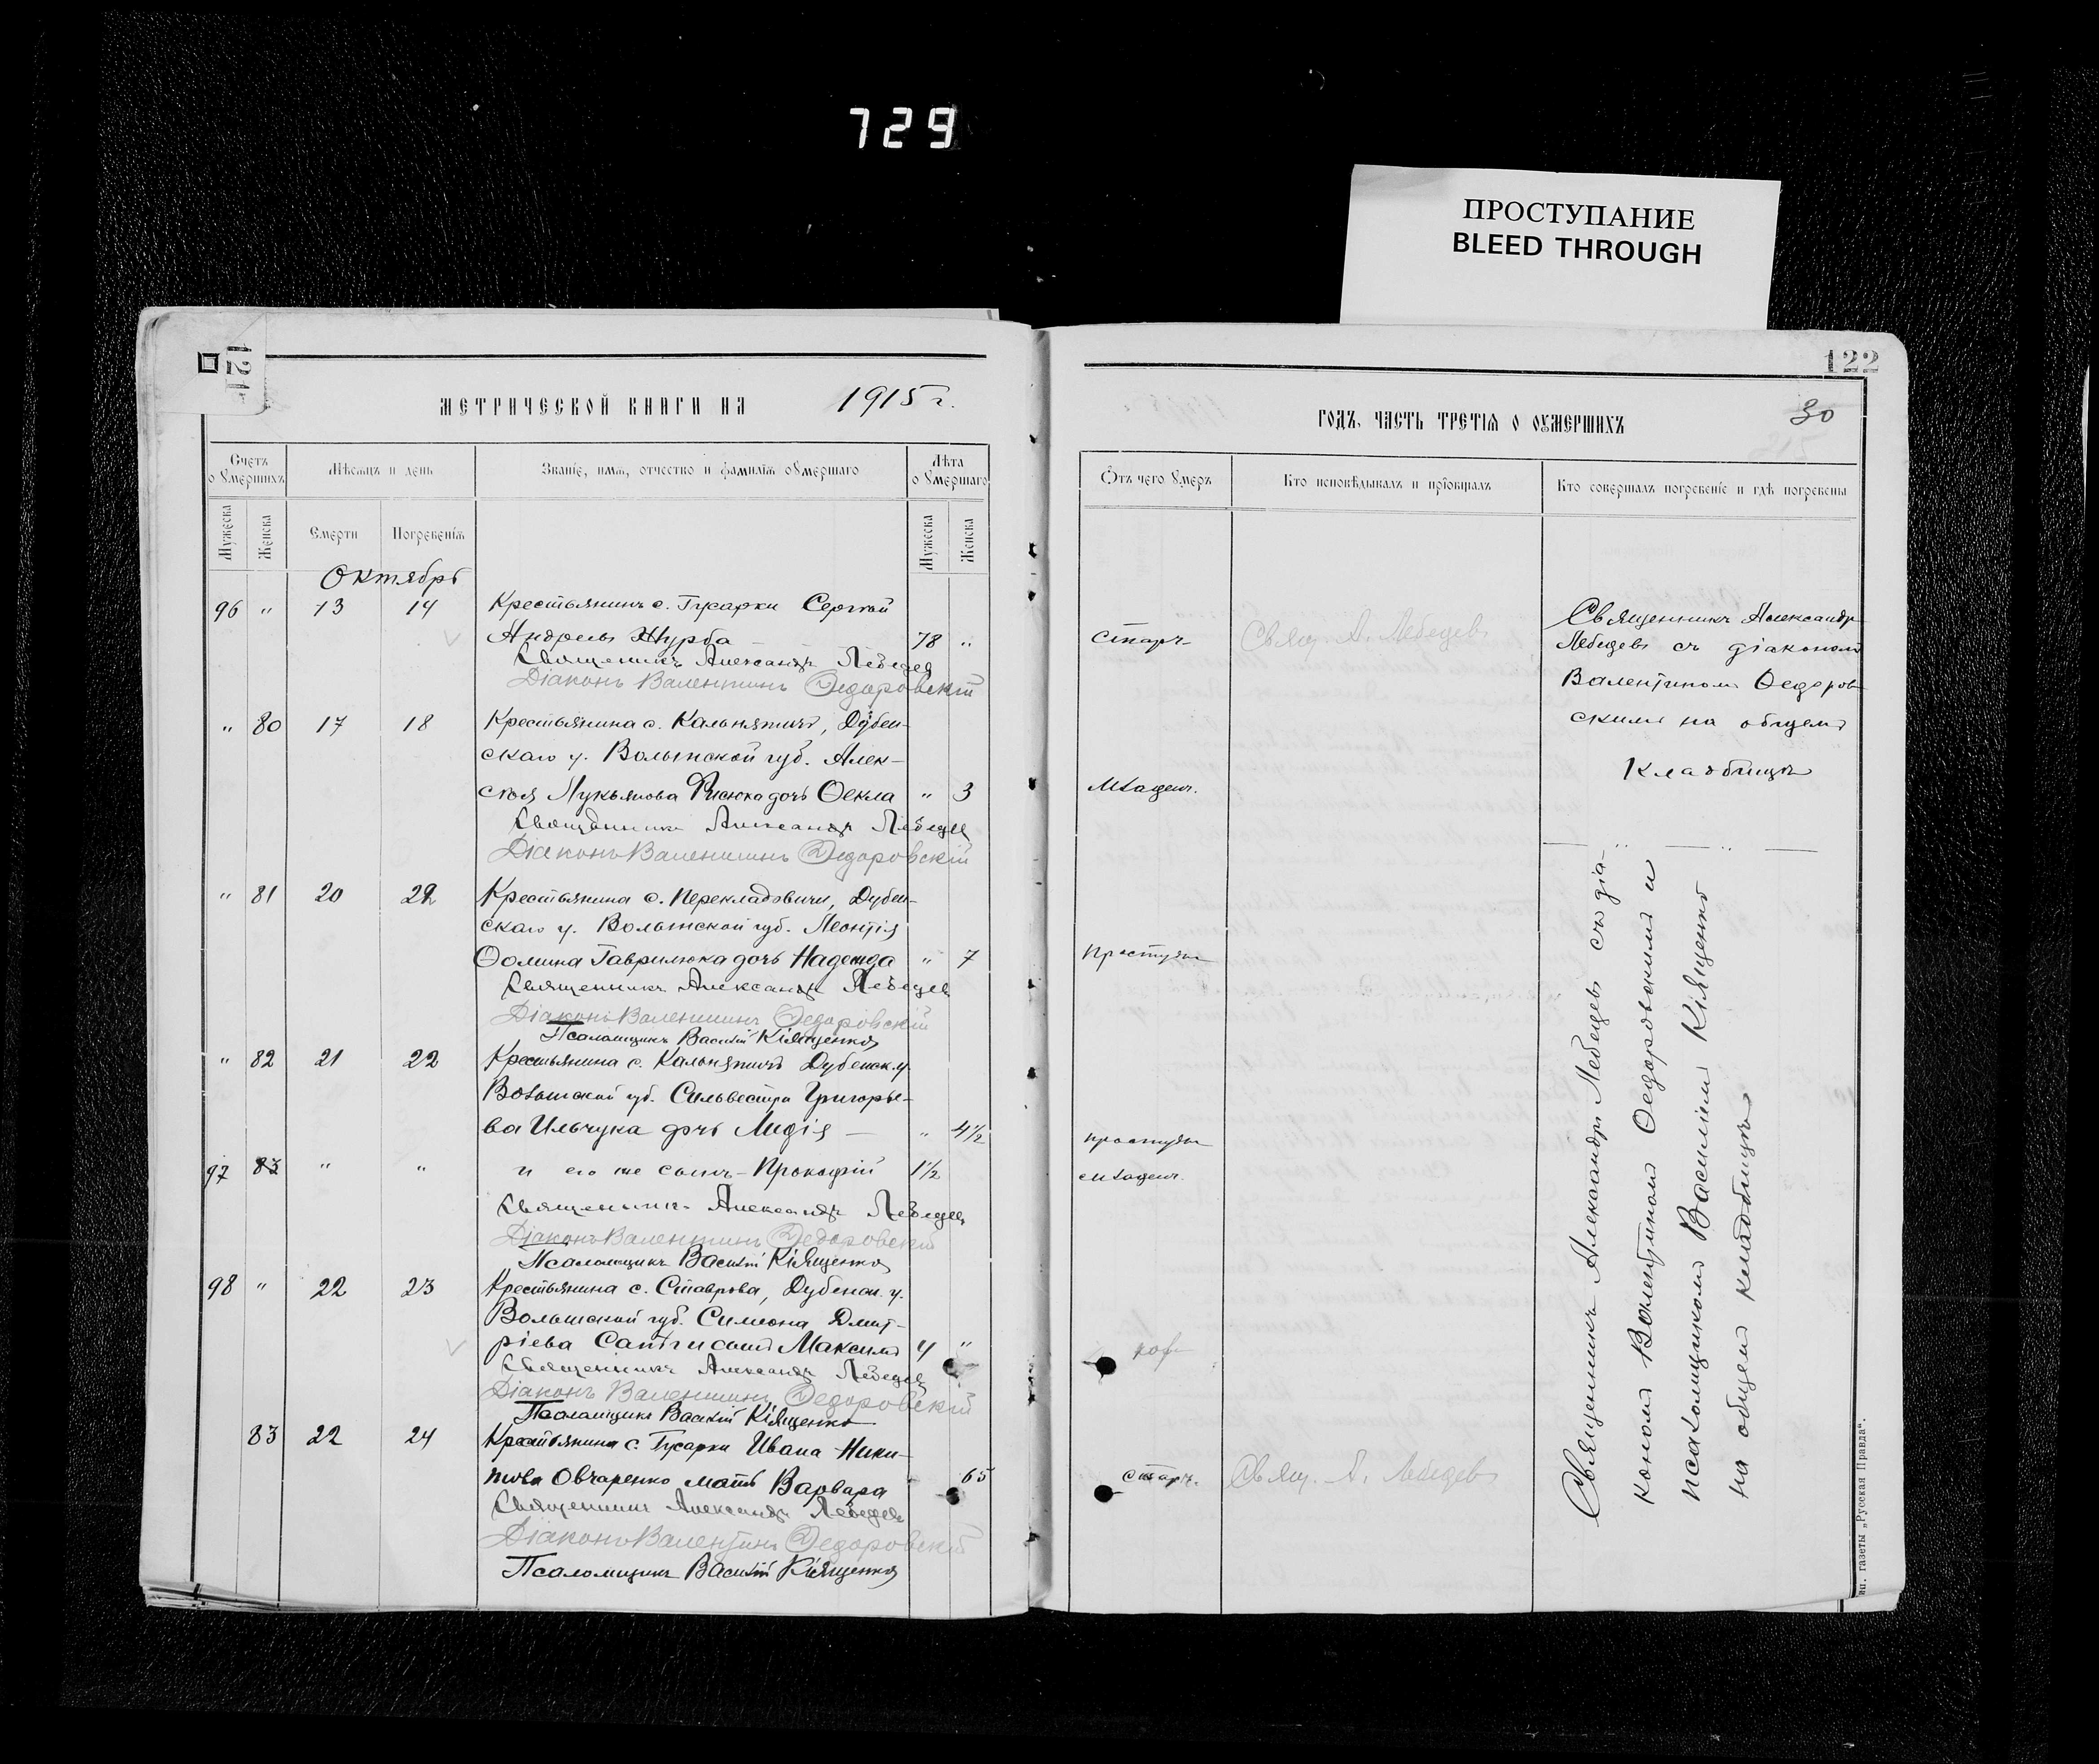 729
ПРОСТУПАНИЕ
BLEED THROUGH
121
МЕТРИЧЕСКОЙ КНИГИ НА 1915 г.
Счетъ о умершихъ
Мѣсяцъ и день
Званіе, имя, отчество и фамилія умершаго
Лѣта умершаго
Мужеска
Женска
Смерти
Погребенія
Мужеска
Женска
Октябрь
96 " 13 14 Крестьянинъ с. Гусарки Сергѣй
Андреевъ Журба 78 "
Священникъ Александръ Лебедев
Діаконъ Валентинъ Ѳедоровскій
" 80 17 18 Крестьянина с. Кальнятичъ, Дубен-
скаго у. Волынской губ. Алек-
сѣя Лукьянова дочь Ѳекла " 3
Священникъ Александръ Лебедев
Діаконъ Валентинъ Ѳедоровскій
" 81 20 22 Крестьянина с. Перекладовичи, Дубен-
скаго у. Волынской губ. Леонтія
Ѳомина Гаврилюка дочь Надежда " 7
Священникъ Александръ Лебедев
Діаконъ Валентинъ Ѳедоровскій
Псаломщикъ Василій Кіященко
" 82 21 22 Крестьянина с. Кальнятичъ Дубенск. у.
Волынской губ. Сильвестра Григорье-
ва Ильчука дочь Лидія " 4½
97 83 " " и его же сынъ Прокофій 1½
Священникъ Александръ Лебедев
Діаконъ Валентинъ Ѳедоровскій
Псаломщикъ Василій Кіященко
98 " 22 23 Крестьянина с. Ставрова, Дубенск. у.
Волынской губ. Симеона Дмит-
ріева сынъ Максимъ 4 "
Священникъ Александръ Лебедев
Діаконъ Валентинъ Ѳедоровскій
Псаломщикъ Василій Кіященко
83 22 24 Крестьянина с. Гусарки Ивана Ники-
това Овчаренко мать Варвара " 65
Священникъ Александръ Лебедев
Діаконъ Валентинъ Ѳедоровскій
Псаломщикъ Василій Кіященко
122
ГОДЪ, ЧАСТЬ ТРЕТІЯ О УМЕРШИХЪ
30
Отъ чего умеръ
Кто исповѣдывалъ и пріобщалъ
Кто совершалъ погребеніе и гдѣ погребены
Старч.
Свящ. А. Лебедевъ
Священникъ Александръ
Лебедевъ съ діакономъ
Валентиномъ Ѳедоров-
скимъ на общемъ
кладбищѣ
Младенч.
Простуды
простуды
младенч.
кор
старч.
Свящ. А. Лебедевъ
Священникъ Александръ Лебедевъ съ діа-
кономъ Валентиномъ Ѳедоровскимъ и
псаломщикомъ Василіемъ Кіященко
на общемъ кладбищѣ
ип. газеты „Русская Правда“.